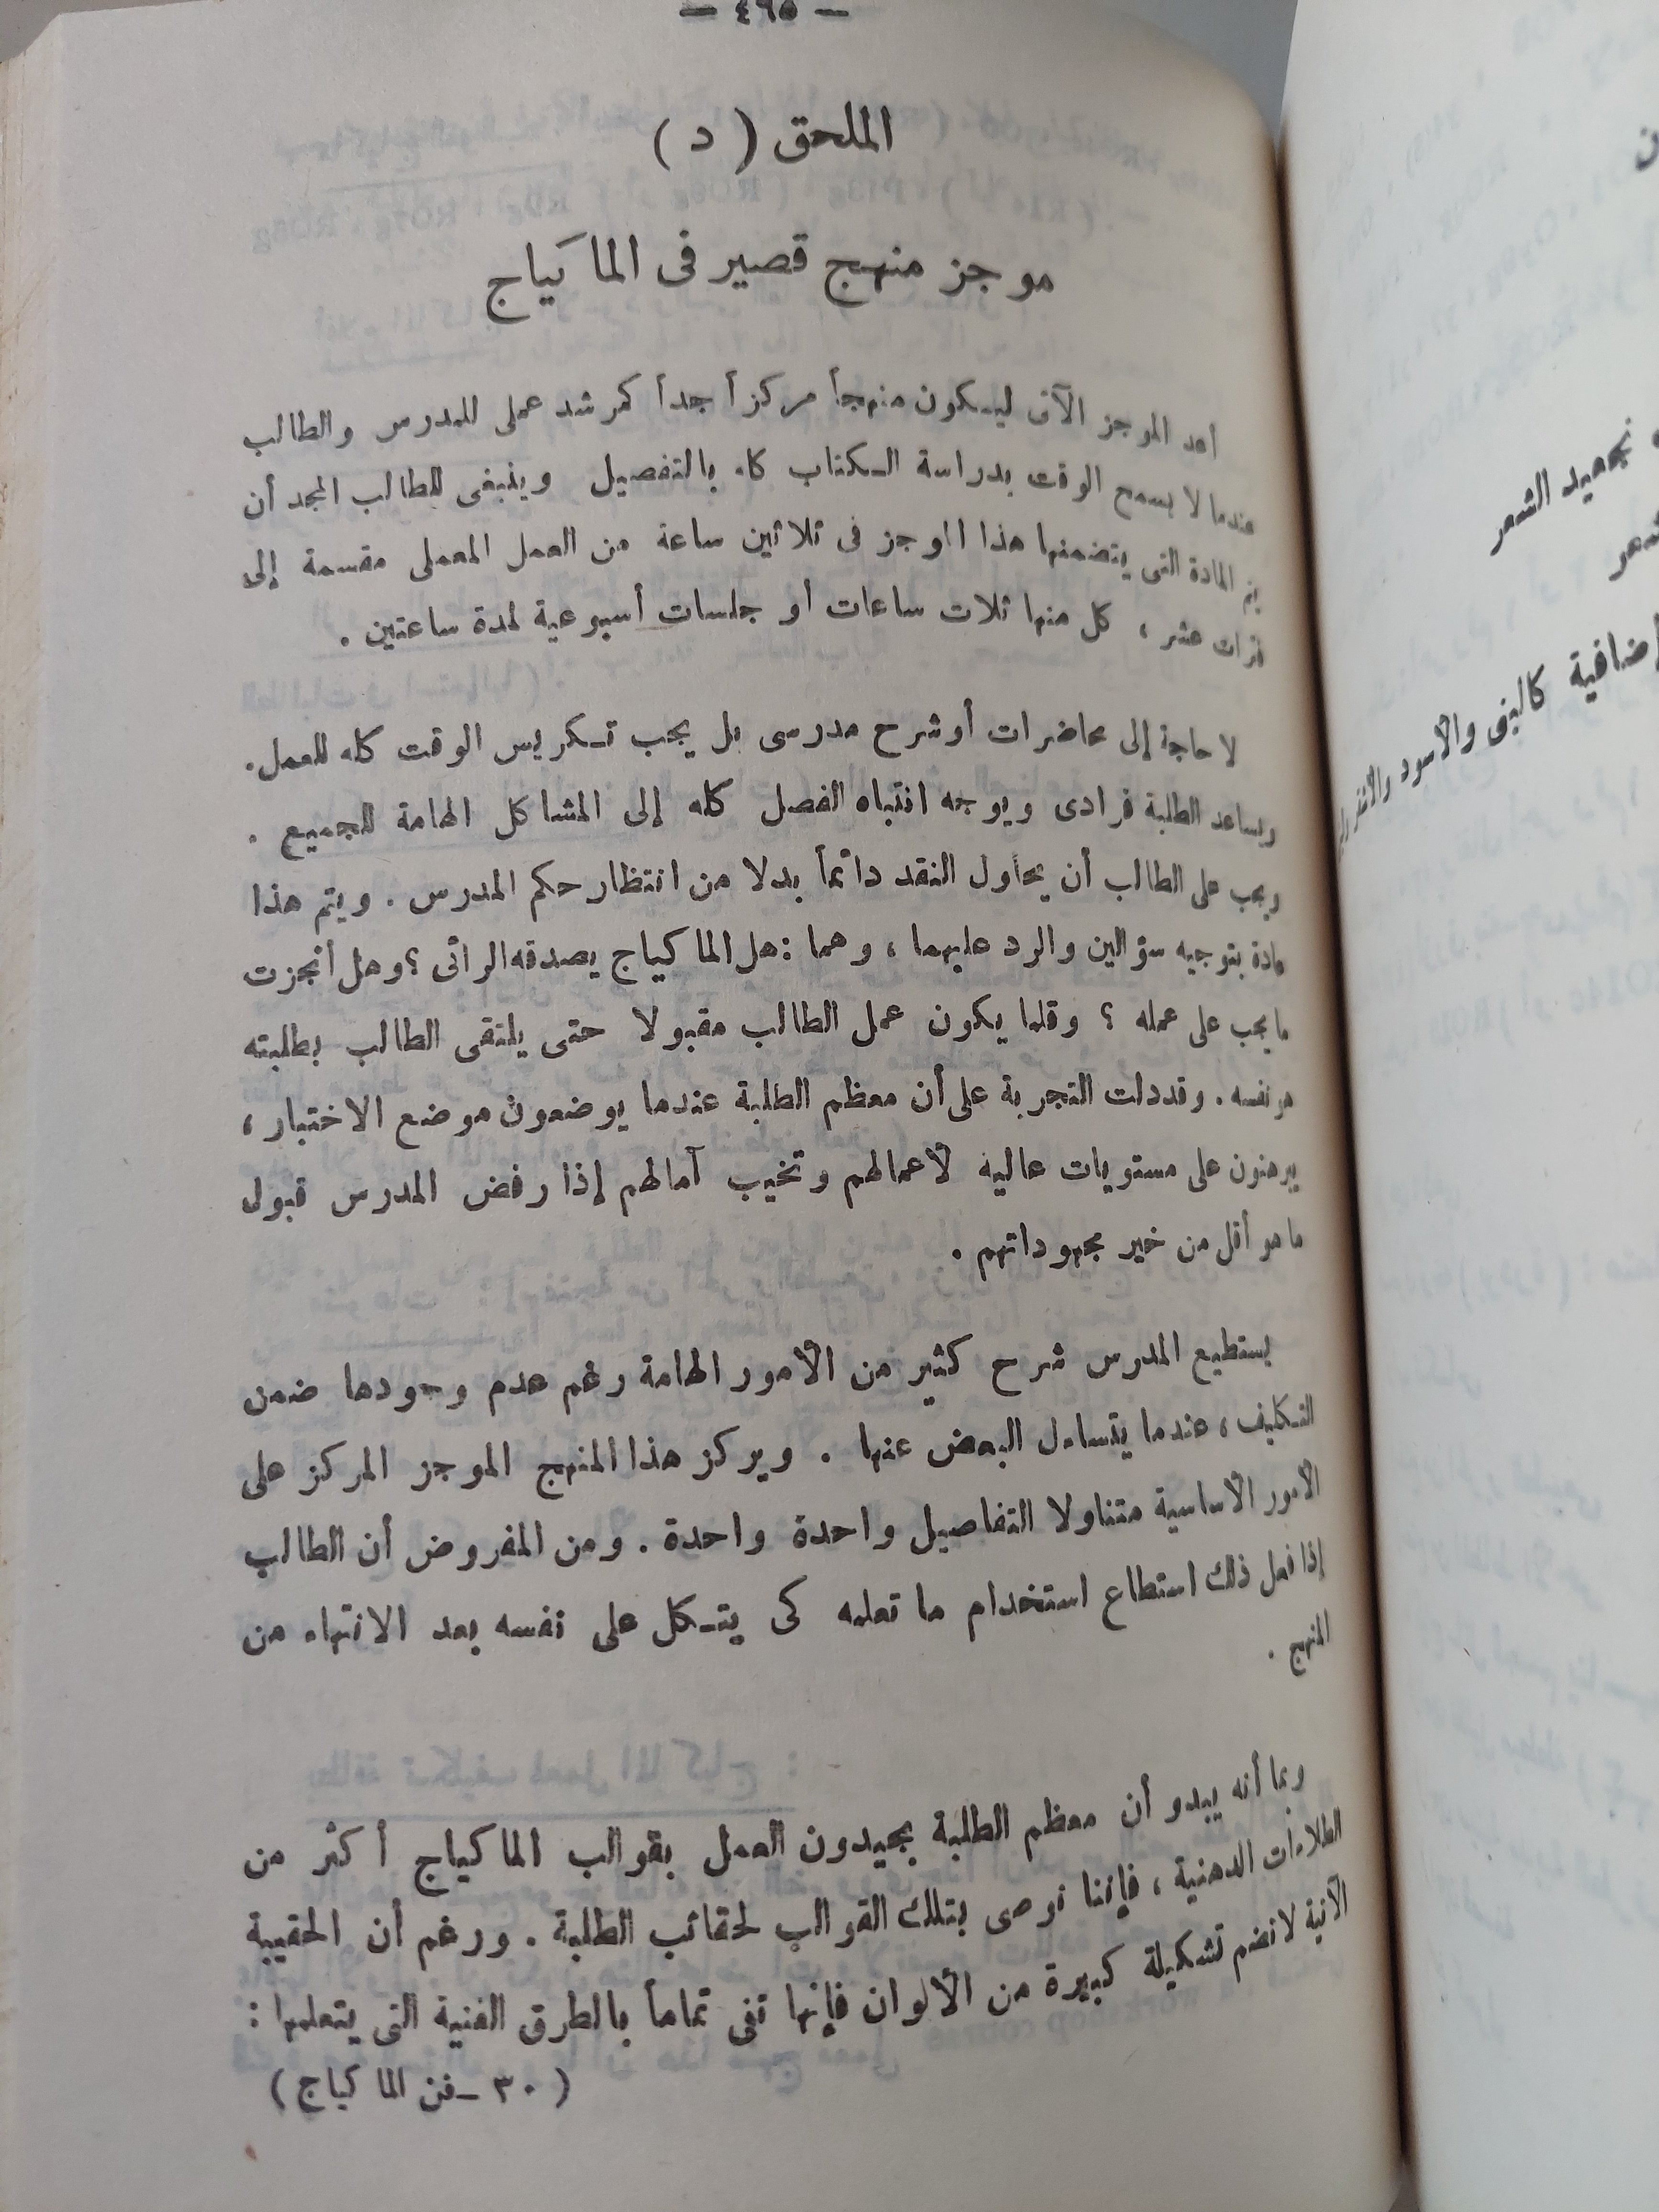 — ٤٦٥ —
الملحق ( د )
موجز منهج قصير فى الماكياج
أعد الموجز الآتى ليكون منهجاً مركزاً جداً كمرشد عملى للمدرس والطالب
عندما لا يسمح الوقت بدراسة الكتاب كله بالتفصيل وينبغى للطالب المجد أن
يتم المادة التى يتضمنها هذا الموجز فى ثلاثين ساعة من العمل المعملى مقسمة إلى
فترات عشر ، كل منها ثلاث ساعات أو جلسات أسبوعية لمدة ساعتين .
لا حاجة إلى محاضرات أو شرح مدرسى بل يجب تكريس الوقت كله للعمل.
ويساعد الطلبة فرادى ويوجه انتباه الفصل كله إلى المشاكل الهامة للجميع .
ويجب على الطالب أن يحاول النقد دائماً بدلا من انتظار حكم المدرس . ويتم هذا
عادة بتوجيه سؤالين والرد عليهما ، وهما : هل الماكياج يصدقه الرائى ؟ وهل أنجزت
ما يجب على عمله ؟ وقلما يكون عمل الطالب مقبولا حتى يلتقى الطالب بطلبته
هو نفسه . وقد دلت التجربة على أن معظم الطلبة عندما يوضعون موضع الاختبار ،
يبرهنون على مستويات عاليه لأعمالهم وتخيب آمالهم إذا رفض المدرس قبول
ما هو أقل من خير مجهوداتهم .
يستطيع المدرس شرح كثير من الأمور الهامة رغم عدم وجودها ضمن
التكليف ، عندما يتساءل البعض عنها . ويركز هذا المنهج الموجز المركز على
الأمور الأساسية متناولا التفاصيل واحدة واحدة . ومن المفروض أن الطالب
إذا فعل ذلك استطاع استخدام ما تعلمه كى يتكل على نفسه بعد الانتهاء من
المنهج .
وبما أنه يبدو أن معظم الطلبة يجيدون العمل بقوالب الماكياج أكثر من
الطلاءات الدهنية ، فإننا نوصى بتلك القوالب لحقائب الطلبة . ورغم أن الحقيبة
الآتية لا تضم تشكيلة كبيرة من الألوان فإنها تفى تماماً بالطرق الفنية التى يتعلمها :
( ٣٠ — فن الماكياج )
تجعيد الشعر
إضافية كالبنى والأسود